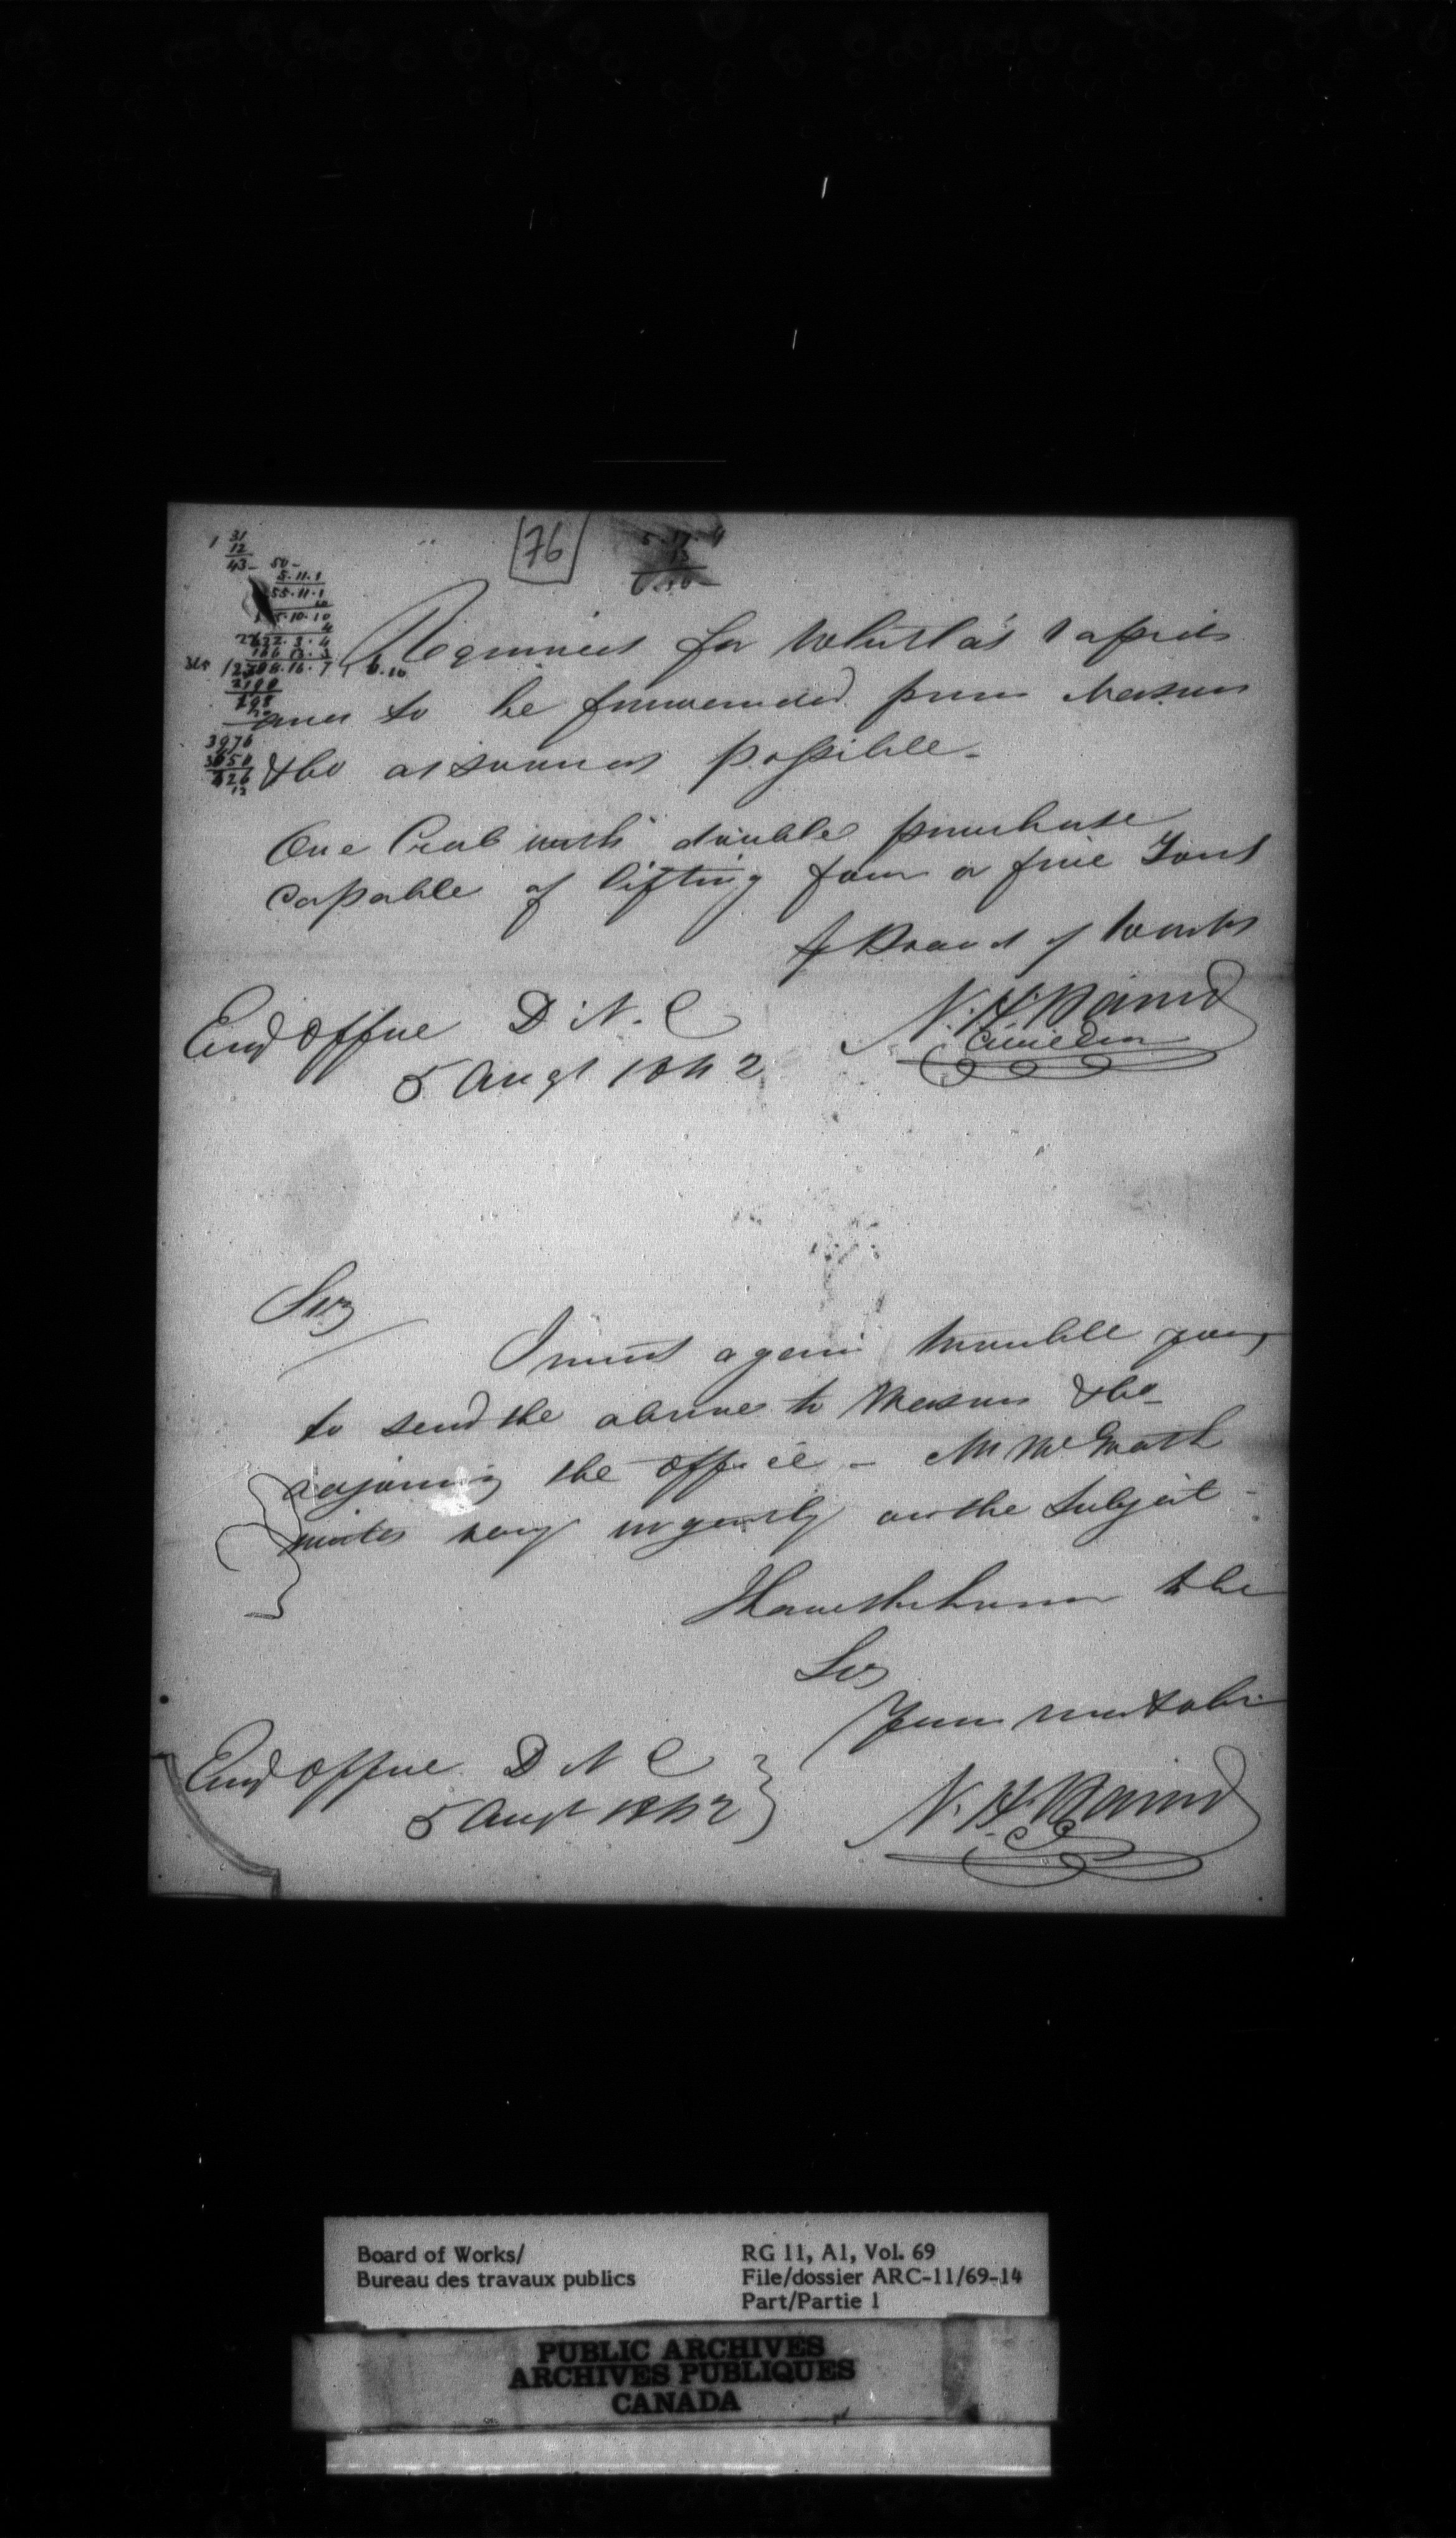 76
1 31
12
43 - 50 -
5.11.1
55.11.1
5.10.10
4
3976
12
Required for Whitla's Rapids
and to be forwarded from Masson
& Co as soon as possible -
One Crab with double purchase
capable of lifting four or five Tons
for Board of Works
N. H. Baird
Civil Eng
Eng Office D. N. C
5 Augt 1842
Sir
I must again trouble you
to send the above to Masson & Co -
adjoining the office - Mr McGrath
writes very urgently on the Subject -
Have the honor to be
Sir
Your most obt
N. H. Baird
Eng Office D N C
5 Augt 1842
Board of Works/
Bureau des travaux publics
RG 11, A1, Vol. 69
File/dossier ARC-11/69-14
Part/Partie 1
PUBLIC ARCHIVES
ARCHIVES PUBLIQUES
CANADA